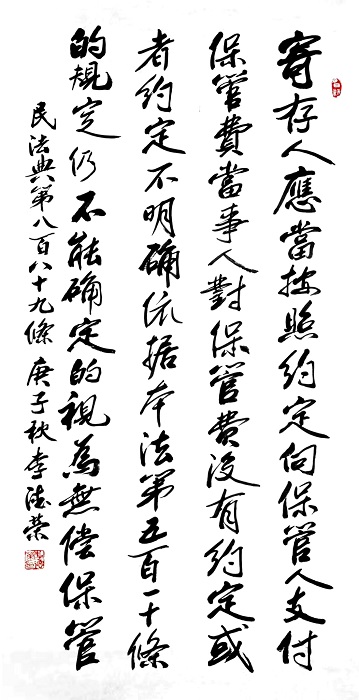 寄存人應當按照約定向保管人支付
保管費當事人對保管費沒有約定或
者約定不明确依据本法第五百一十條
的規定仍不能确定的視為無偿保管
民法典第八百八十九條 庚子秋李德榮